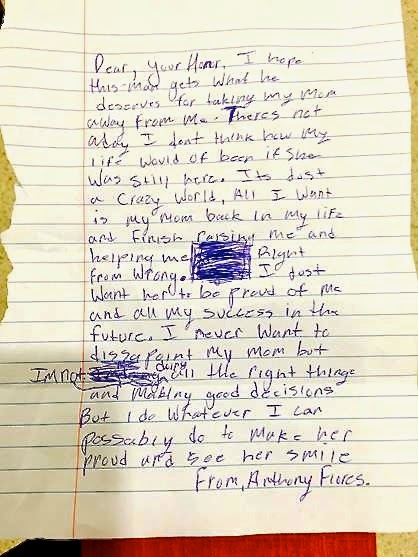 Dear, Your Honer, I hope
this man gets what he
deserves for taking my Mom
away from me. Theres not
a day I dont think how my
life would of been if she
was still here. Its Just
a Crazy world, All I want
is my mom back in my life
and finish raising me and
helping me Right
from wrong. I Just
Want her to be proud of me
and all my success in the
future. I never want to
dissapoint my mom but
Im not doing all the right things
and making good decisions
But I do whatever I can
possabily do to make her
proud and see her smile
From, Anthony Flores.